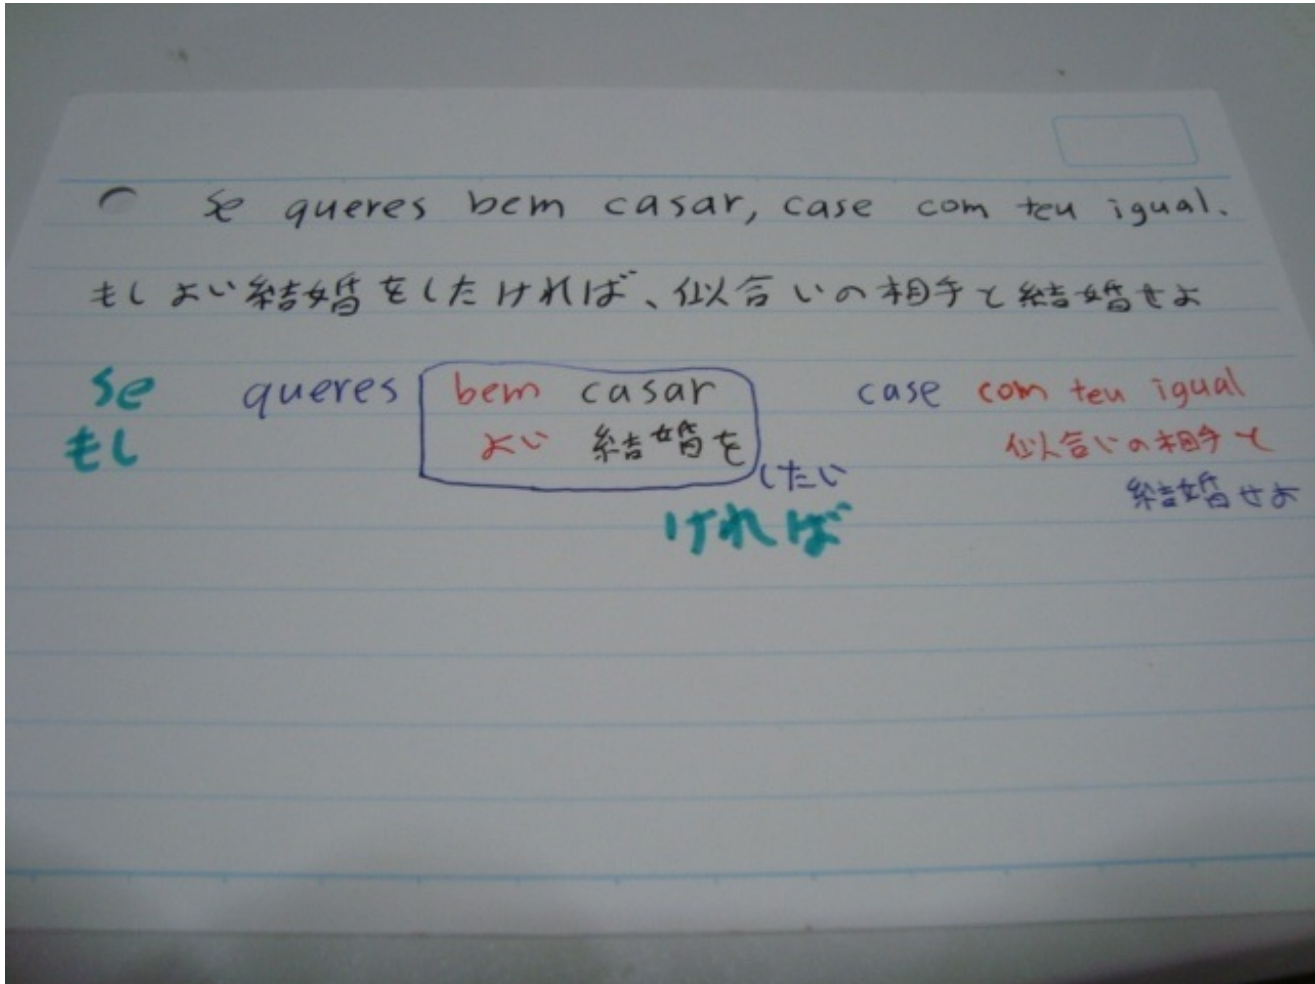 Se queres bem casar, case com teu igual.
もしよい結婚をしたければ、似合いの相手と結婚せよ
se queres bem casar case com teu igual
もし よい 結婚を 似合いの相手と
したい 結婚せよ
ければ